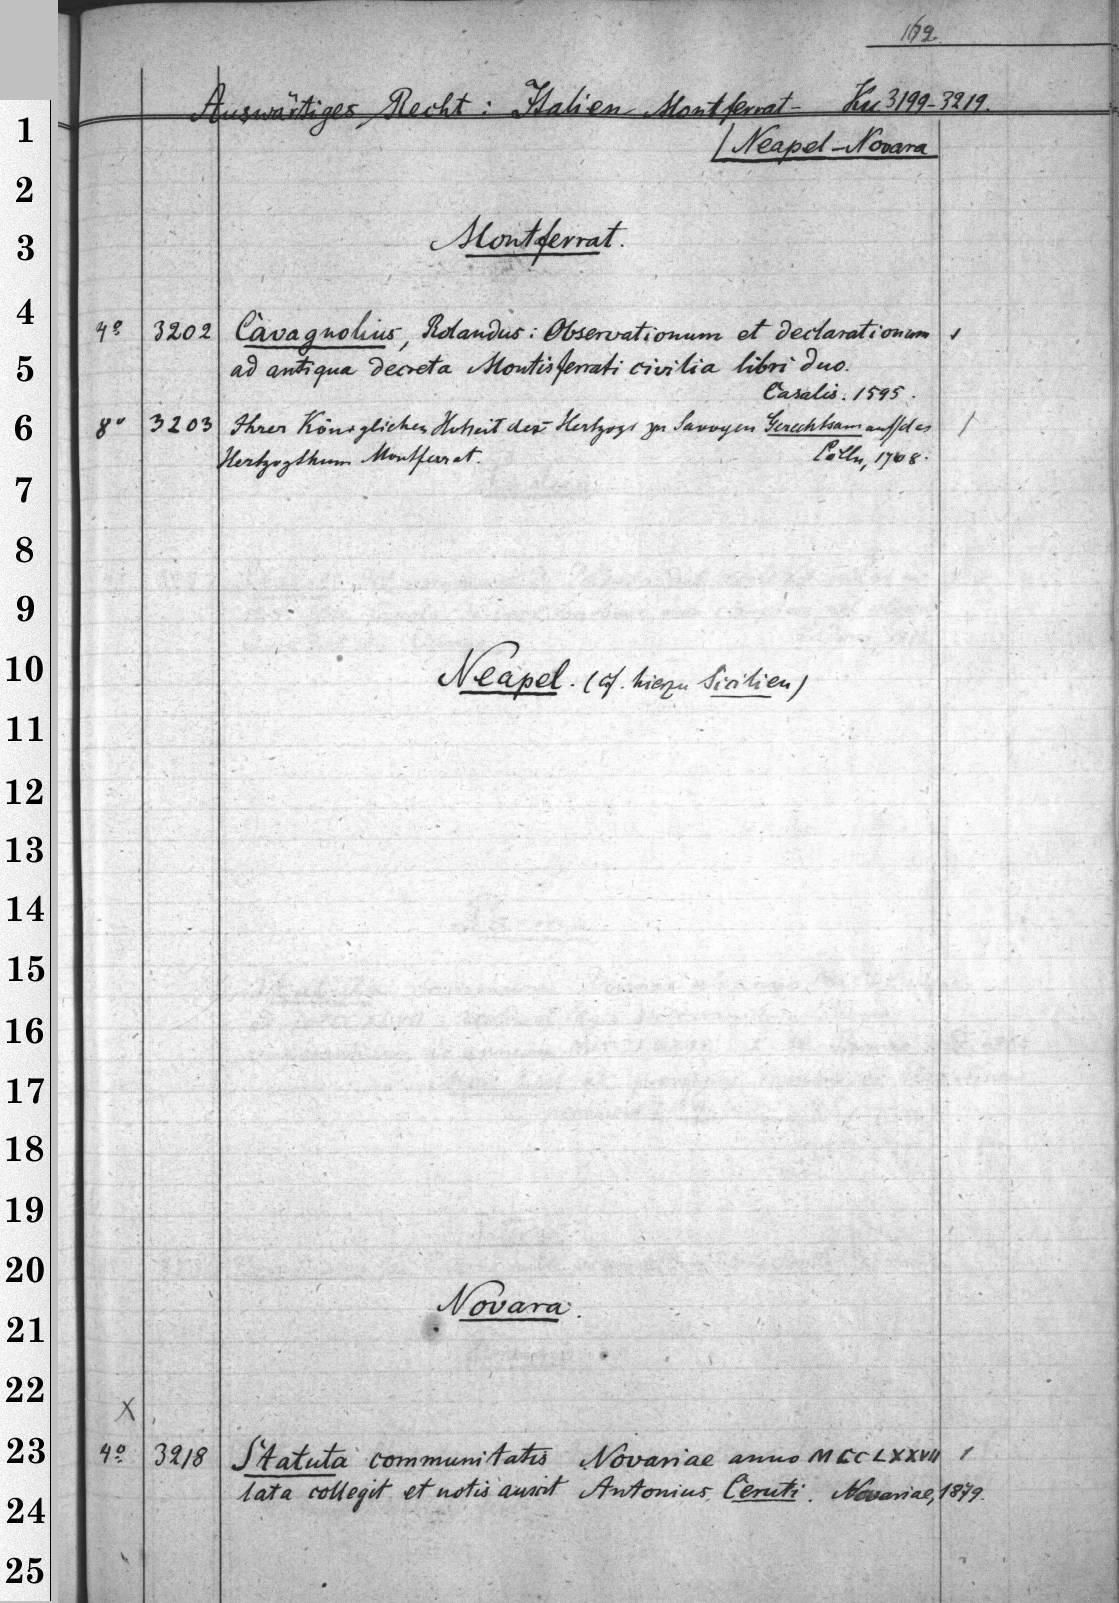 162.
Auswärtiges Recht: Italien Montferrat- Ku 3199-3219.
Neapel-Novara
1
2
3
Montferrat.
4
4° 3202 Cavagnolius, Rolandus: Observationum et declarationum 1
5
ad antiqua decreta Montisferrati civilia libri duo.
Casalis. 1595.
6
8° 3203 Ihrer Königlichen Hoheit des Hertzogs zu Savoyen Gerechtsam auff das 1
Hertzogthum Montferrat. Cölln, 1708.
7
8
9
10
Neapel. (cf. hierzu Sicilien)
11
12
13
14
15
16
17
18
19
20
Novara.
21
22
X
23
4° 3218 Statuta communitatis Novariae anno MCCLXXVII 1
lata collegit et notis auxit Antonius Ceruti. Novariae, 1879.
24
25